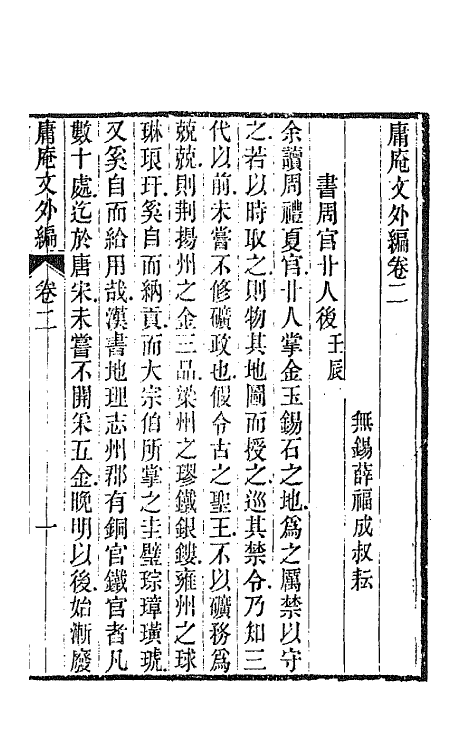 庸庵文外編卷二
無錫薛福成叔耘
書周官卝人後 壬辰
余讀周禮夏官卝人掌金玉錫石之地爲之厲禁以守
之若以時取之則物其地圖而授之巡其禁令乃知三
代以前未嘗不修礦政也假令古之聖王不以礦務爲
兢兢則荆揚州之金三品梁州之璆鐵銀鏤雍州之球
琳琅玕奚自而納貢而大宗伯所掌之圭璧琮璋璜琥
又奚自而給用哉漢書地理志州郡有銅官鐵官者凡
數十處迄於唐宋未嘗不開采五金晚明以後始漸廢
庸庵文外編 卷二 一